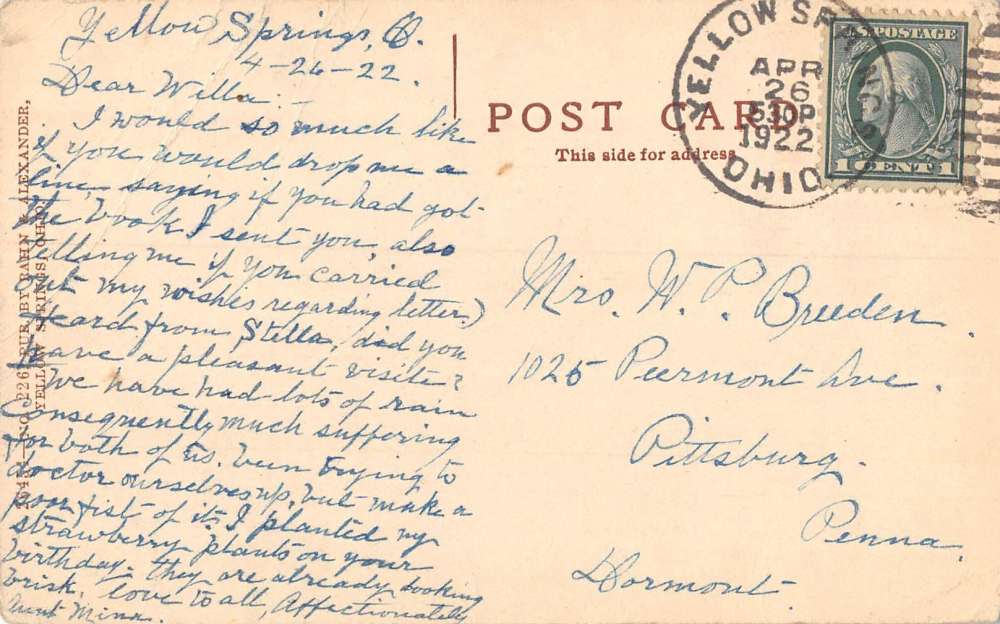 Yellow Springs, O.
4-26-22.
Dear Willa:-
I would so much like
if you would drop me a
line, saying if you had got
the book I sent you, also
telling me if you carried
out my wishes regarding letter.)
Heard from Stella, did you
have a pleasant visite?
We have had lots of rain
Consequently much suffering
for both of us. been trying to
doctor ourselves up, but make a
poor fist of it. I planted my
strawberry plants on your
birthday. they are already looking
brisk. love to all, Affectionately
Aunt Minn.
POST CARD
This side for address
YELLOW SPRINGS
APR
26
530P
1922
OHIO
U.S. POSTAGE
1 CENT 1
Mrs. W. P. Breeden.
1025 Peermont Ave.
Pittsburg.
Penna.
Dormont.
PUB. BY BAHN & ALEXANDER,
YELLOW SPRINGS, OHIO